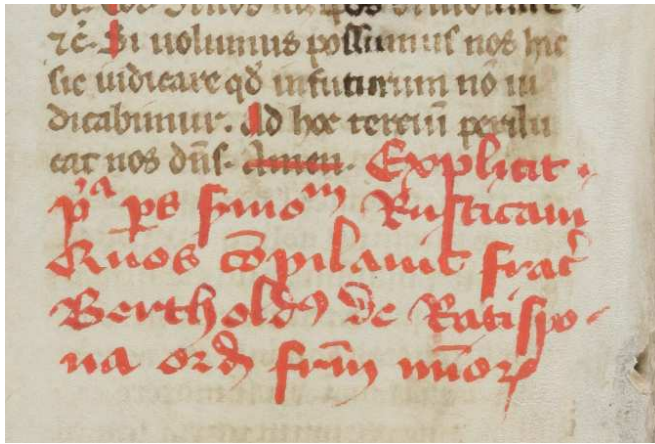 ⁊c̄. Si uolumus possumus nos hic
sic iudicare qd̄ in futurum nō iu
dicabimur. Ad hoc terciū perdu
cat nos dn̄s. Amen. Explicit.
pᵃ ps smoᵐ Rusticani
Quos cōpilauit frat̄
Bertholdꝰ de Ratispo-
na ord̄ frm̄ mīorꝝ